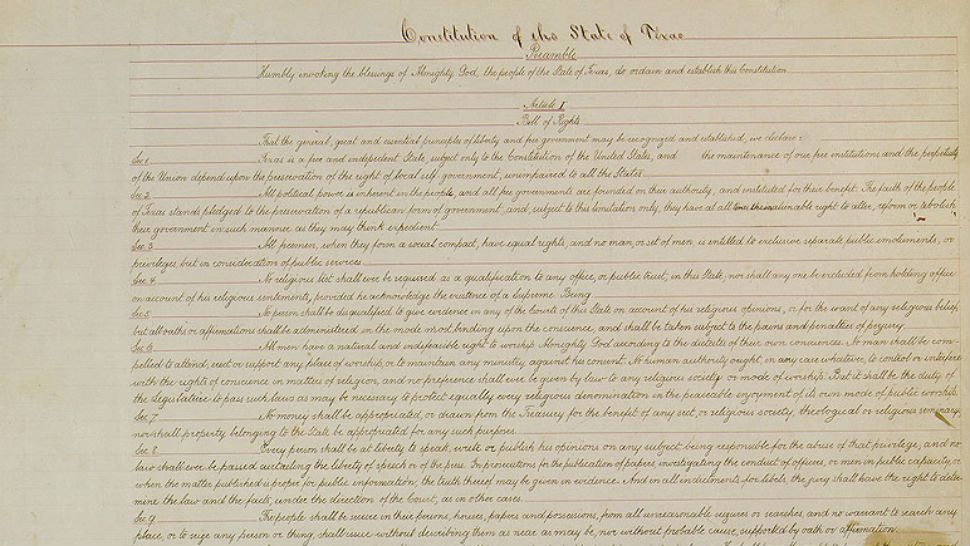 Constitution of the State of Texas
Preamble
Humbly invoking the blessings of Almighty God, the people of the State of Texas, do ordain and establish this Constitution
Article I
Bill of Rights
That the general, great and essential principles of liberty and free government may be recognized and established, we declare:
Sec 1 Texas is a free and independent State, subject only to the Constitution of the United States, and the maintenance of our free institutions and the perpetuity
of the Union depend upon the preservation of the right of local self-government, unimpaired to all the States
Sec 2 All political power is inherent in the people, and all free governments are founded on their authority, and instituted for their benefit. The faith of the people
of Texas stands pledged to the preservation of a republican form of government, and, subject to this limitation only, they have at all times the inalienable right to alter, reform or abolish
their government in such manner as they may think expedient.
Sec 3 All freemen, when they form a social compact, have equal rights, and no man, or set of men, is entitled to exclusive separate public emoluments, or
privileges, but in consideration of public services
Sec. 4 No religious test shall ever be required as a qualification to any office, or public trust, in this State; nor shall any one be excluded from holding office
on account of his religious sentiments, provided he acknowledge the existence of a Supreme Being
Sec 5 No person shall be disqualified to give evidence in any of the Courts of this State on account of his religious opinions, or for the want of any religious belief,
but all oaths or affirmations shall be administered in the mode most binding upon the conscience, and shall be taken subject to the pains and penalties of perjury.
Sec 6 All men have a natural and indefeasible right to worship Almighty God according to the dictates of their own consciences. No man shall be com-
pelled to attend, erect or support any place of worship, or to maintain any ministry against his consent. No human authority ought, in any case whatever, to control or interfere
with the rights of conscience in matters of religion, and no preference shall ever be given by law to any religious society or mode of worship. But it shall be the duty of
the Legislature to pass such laws as may be necessary to protect equally every religious denomination in the peaceable enjoyment of its own mode of public worship.
Sec 7 No money shall be appropriated, or drawn from the Treasury for the benefit of any sect, or religious society, theological or religious seminary,
nor shall property belonging to the State be appropriated for any such purposes.
Sec 8 Every person shall be at liberty to speak, write or publish his opinions on any subject, being responsible for the abuse of that privilege; and no
law shall ever be passed curtailing the liberty of speech or of the press. In prosecutions for the publication of papers, investigating the conduct of officers, or men in public capacity, or
when the matter published is proper for public information, the truth thereof may be given in evidence. And in all indictments for libels, the jury shall have the right to deter-
mine the law and the facts, under the direction of the Court, as in other cases.
Sec 9 The people shall be secure in their persons, houses, papers and possessions, from all unreasonable seizures or searches, and no warrant to search any
place, or to seize any person or thing, shall issue without describing them as near as may be, nor without probable cause, supported by oath or affirmation.